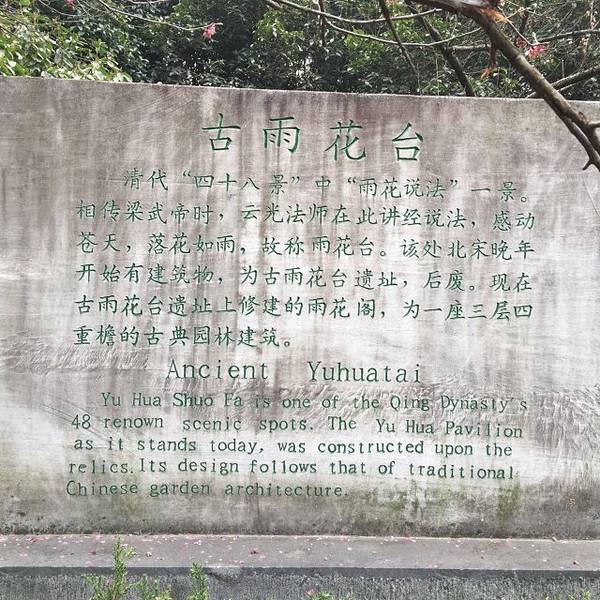 古雨花台
清代“四十八景”中“雨花说法”一景。
相传梁武帝时，云光法师在此讲经说法，感动
苍天，落花如雨，故称雨花台。该处北宋晚年
开始有建筑物，为古雨花台遗址，后废。现在
古雨花台遗址上修建的雨花阁，为一座三层四
重檐的古典园林建筑。
Ancient Yuhuatai
Yu Hua Shuo Fa is one of the Qing Dynasty's
48 renown scenic spots. The Yu Hua Pavilion
as it stands today, was constructed upon the
relics. Its design follows that of traditional
Chinese garden architecture.